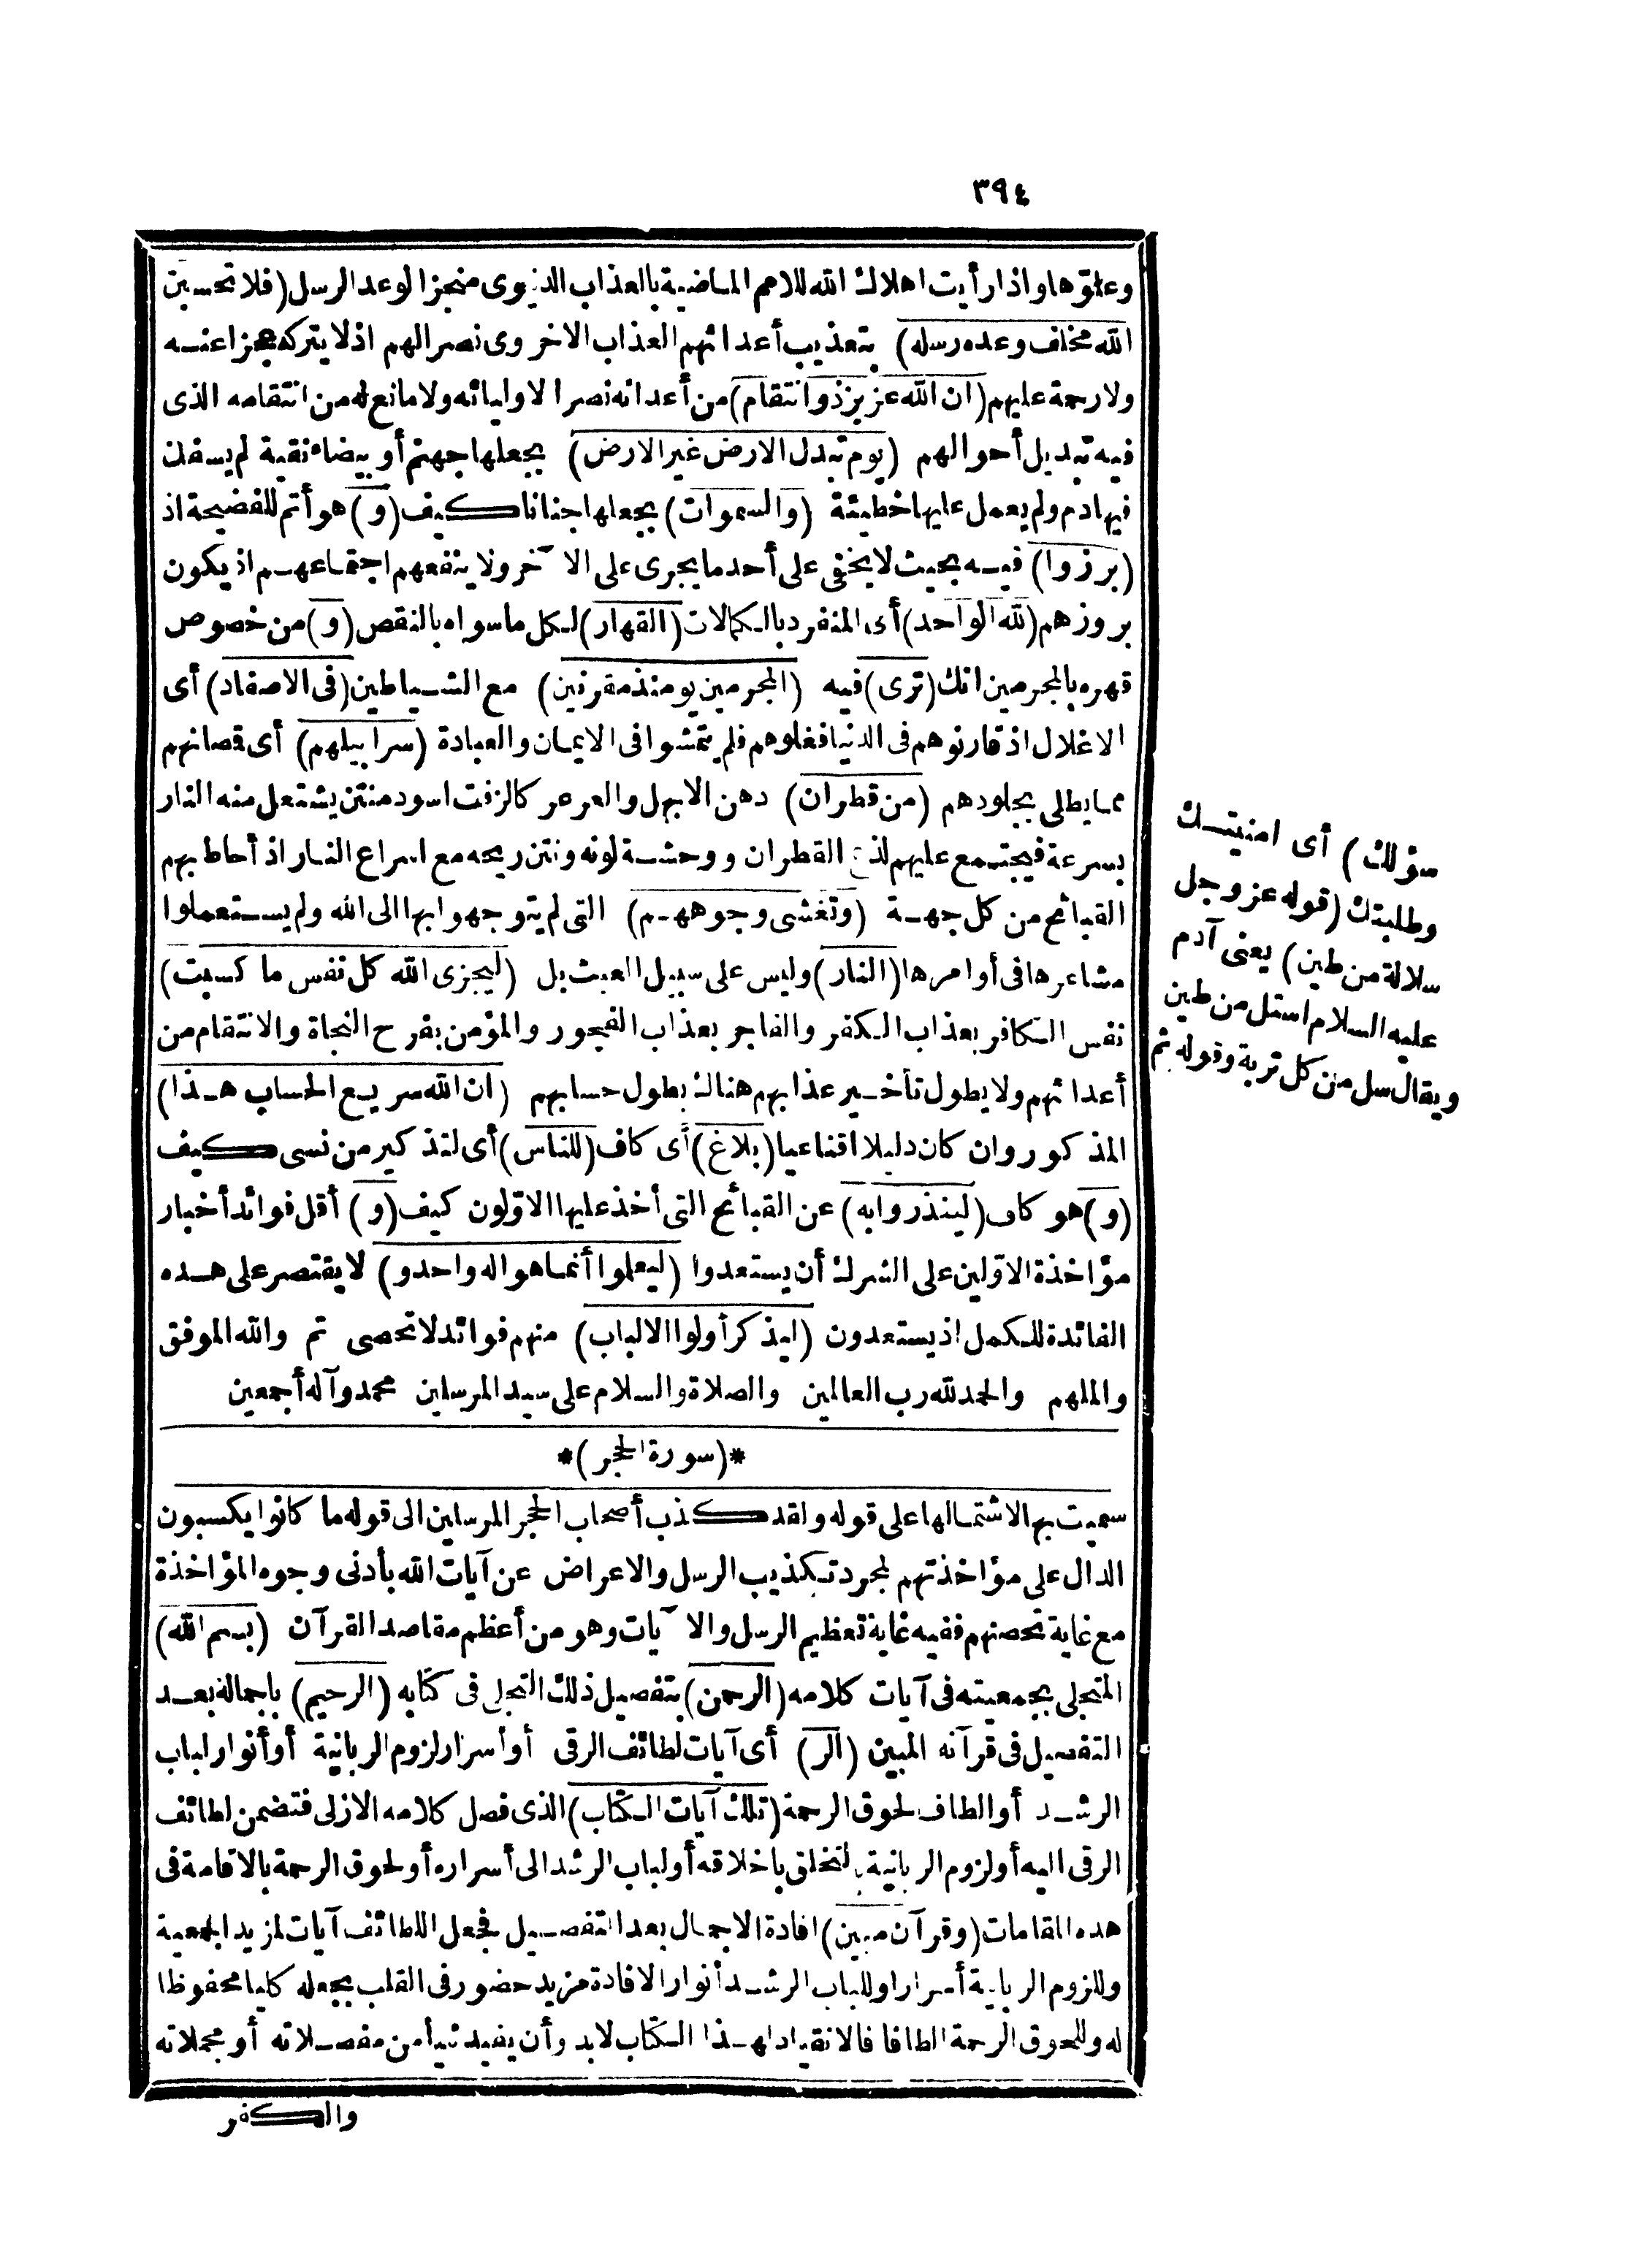 ٣٩٤
وعلوّها واذا رأيت اهلاك الله للامم الماضية بالعذاب الدنيوى منجزا لوعد الرسل (فلا تحسبن
الله مخلف وعده رسله) بتعذيب أعدائهم العذاب الاخروى نصرا لهم اذ لا يتركه عجزا عنه
ولا رحمة عليهم (ان الله عزيز ذو انتقام) من أعدائه نصرا لاوليائه ولا مانع له من انتقامه الذى
فيه تبديل أحوالهم (يوم تبدل الارض غير الارض) بجعلها جهنم أو بيضاء نقية لم يسفك
فيها دم ولم يعمل عليها خطيئة (والسموات) بجعلها جنانا كيف (و) هو أتم للفضيحة اذ
(برزوا) فيه بحيث لا يخفى على أحد ما يجرى على الآخر ولا ينفعهم اجتماعهم اذ يكون
بروزهم (لله الواحد) أى المنفرد بالكمالات (القهار) لكل ما سواه بالنقص (و) من خصوص
قهره بالمجرمين انك (ترى) فيه (المجرمين يومئذ مقرنين) مع الشياطين (فى الاصفاد) أى
الاغلال اذ قارنوهم فى الدنيا فغلوهم فلم يتمشوا فى الايمان والعبادة (سرابيلهم) أى قصانهم
مما يطلى بجلودهم (من قطران) دهن الابهل والعرعر كالزفت اسود منتن يشتعل منه النار
بسرعة فيجتمع عليهم لذع القطران ووحشة لونه ونتن ريحه مع اسراع النار اذ أحاط بهم
القبائح من كل جهة (وتغشى وجوههم) التى لم يتوجهوا بها الى الله ولم يستعملوا
مشاعرها فى أوامرها (النار) وليس على سبيل العبث بل (ليجزى الله كل نفس ما كسبت)
نفس الكافر بعذاب الكفر والفاجر بعذاب الفجور والمؤمن بفرح النجاة والانتقام من
أعدائهم ولا يطول تأخير عذابهم هناك بطول حسابهم (ان الله سريع الحساب هذا)
المذكور وان كان دليلا اقناعيا (بلاغ) أى كاف (للناس) أى لتذكير من نسى كيف
(و) هو كاف (لينذروا به) عن القبائح التى أخذ عليها الاوّلون كيف (و) أقل فوائد أخبار
مؤاخذة الاوّلين على الشرك أن يستعدوا (ليعلموا أنما هو اله واحد و) لا يقتصر على هذه
الفائدة للكمل اذ يستعدون (ليذكر أولوا الالباب) منهم فوائد لا تحصى تم والله الموفق
والملهم والحمد لله رب العالمين والصلاة والسلام على سيد المرسلين محمد وآله أجمعين
*(سورة الحجر)*
سميت بها لاشتمالها على قوله ولقد كذب أصحاب الحجر المرسلين الى قوله ما كانوا يكسبون
الدال على مؤاخذتهم لمجرد تكذيب الرسل والاعراض عن آيات الله بأدنى وجوه المؤاخذة
مع غاية تحصنهم ففيه غاية تعظيم الرسل والآيات وهو من أعظم مقاصد القرآن (بسم الله)
المتجلى بجمعيته فى آيات كلامه (الرحمن) بتفصيل ذلك التجلى فى كتابه (الرحيم) باجماله بعد
التفصيل فى قرآنه المبين (الر) أى آيات لطائف الرقى أو أسرار لزوم الربانية أو أنوار لباب
الرشد أو الطاف لحوق الرحمة (تلك آيات الكتاب) الذى فصل كلامه الازلى فتضمن لطائف
الرقى اليه أو لزوم الربانية بالتخلق باخلاقه أو لباب الرشد الى أسراره أو لحوق الرحمة بالاقامة فى
هذه المقامات (وقرآن مبين) افادة الاجمال بعد التفصيل فجعل اللطائف آيات لمزيد الجمعية
وللزوم الربانية أسرارا وللباب الرشد أنوار الافادة مزيد حضور فى القلب بجعله كليا محفوظا
له وللحوق الرحمة الطافا فالانقياد لهذا الكتاب لابد وأن يفيد شيأ من مفصلاته أو مجملاته
والكفر
سؤلك) أى امنيتك
وطلبتك (قوله عز وجل
سلالة من طين) يعنى آدم
عليه السلام استل من طين
ويقال سل من كل تربة وقوله ثم